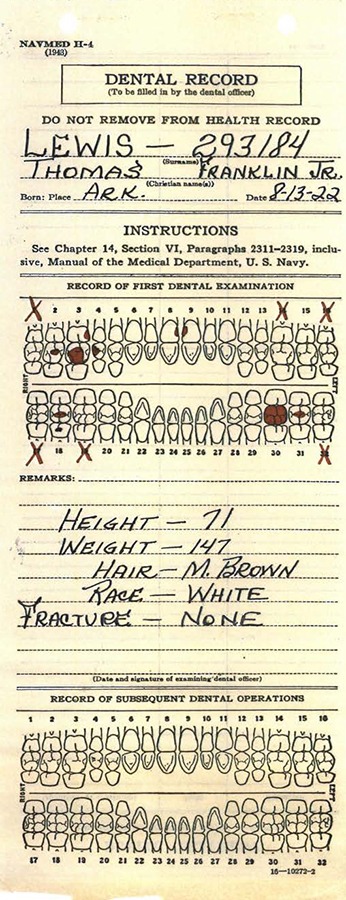 NAVMED H-4
(1943)
DENTAL RECORD
(To be filled in by the dental officer)
DO NOT REMOVE FROM HEALTH RECORD
LEWIS — 293184
(Surname)
THOMAS FRANKLIN JR.
(Christian name(s))
Born: Place ARK. Date 8-13-22
INSTRUCTIONS
See Chapter 14, Section VI, Paragraphs 2311–2319, inclu-
sive, Manual of the Medical Department, U. S. Navy.
RECORD OF FIRST DENTAL EXAMINATION
2 3 4 5 6 7 8 9 10 11 12 13 15
RIGHT LEFT
18 20 21 22 23 24 25 26 27 28 29 30 31
REMARKS:
HEIGHT — 71
WEIGHT — 147
HAIR — M. BROWN
RACE — WHITE
FRACTURE — NONE
(Date and signature of examining dental officer)
RECORD OF SUBSEQUENT DENTAL OPERATIONS
1 2 3 4 5 6 7 8 9 10 11 12 13 14 15 16
RIGHT LEFT
17 18 19 20 21 22 23 24 25 26 27 28 29 30 31 32
16—10272-2